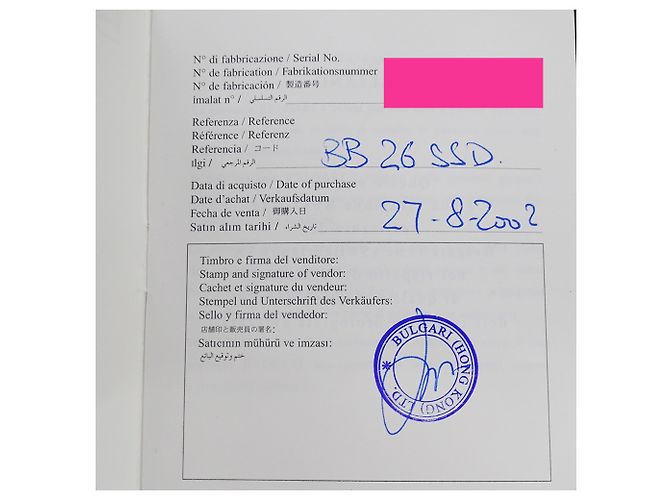 N° di fabbricazione / Serial No.
N° de fabrication / Fabrikationsnummer
N° de fabricación / 製造番号
imalat n° / الرقم التسلسلي
Referenza / Reference
Référence / Referenz
Referencia / コード
ılgi / الرقم المرجعي
BB 26 SSD.
Data di acquisto / Date of purchase
Date d'achat / Verkaufsdatum
Fecha de venta / 御購入日
Satın alım tarihi / تاريخ الشراء
27-8-2002
Timbro e firma del venditore:
Stamp and signature of vendor:
Cachet et signature du vendeur:
Stempel und Unterschrift des Verkäufers:
Sello y firma del vendedor:
店舗印と販売員の署名:
Satıcının mühürü ve imzası:
ختم وتوقيع البائع
BULGARI (HONG KONG) LTD.